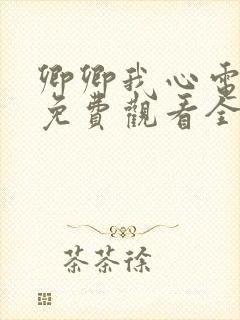 卿卿我心電
免費觀看全
茶茶徐